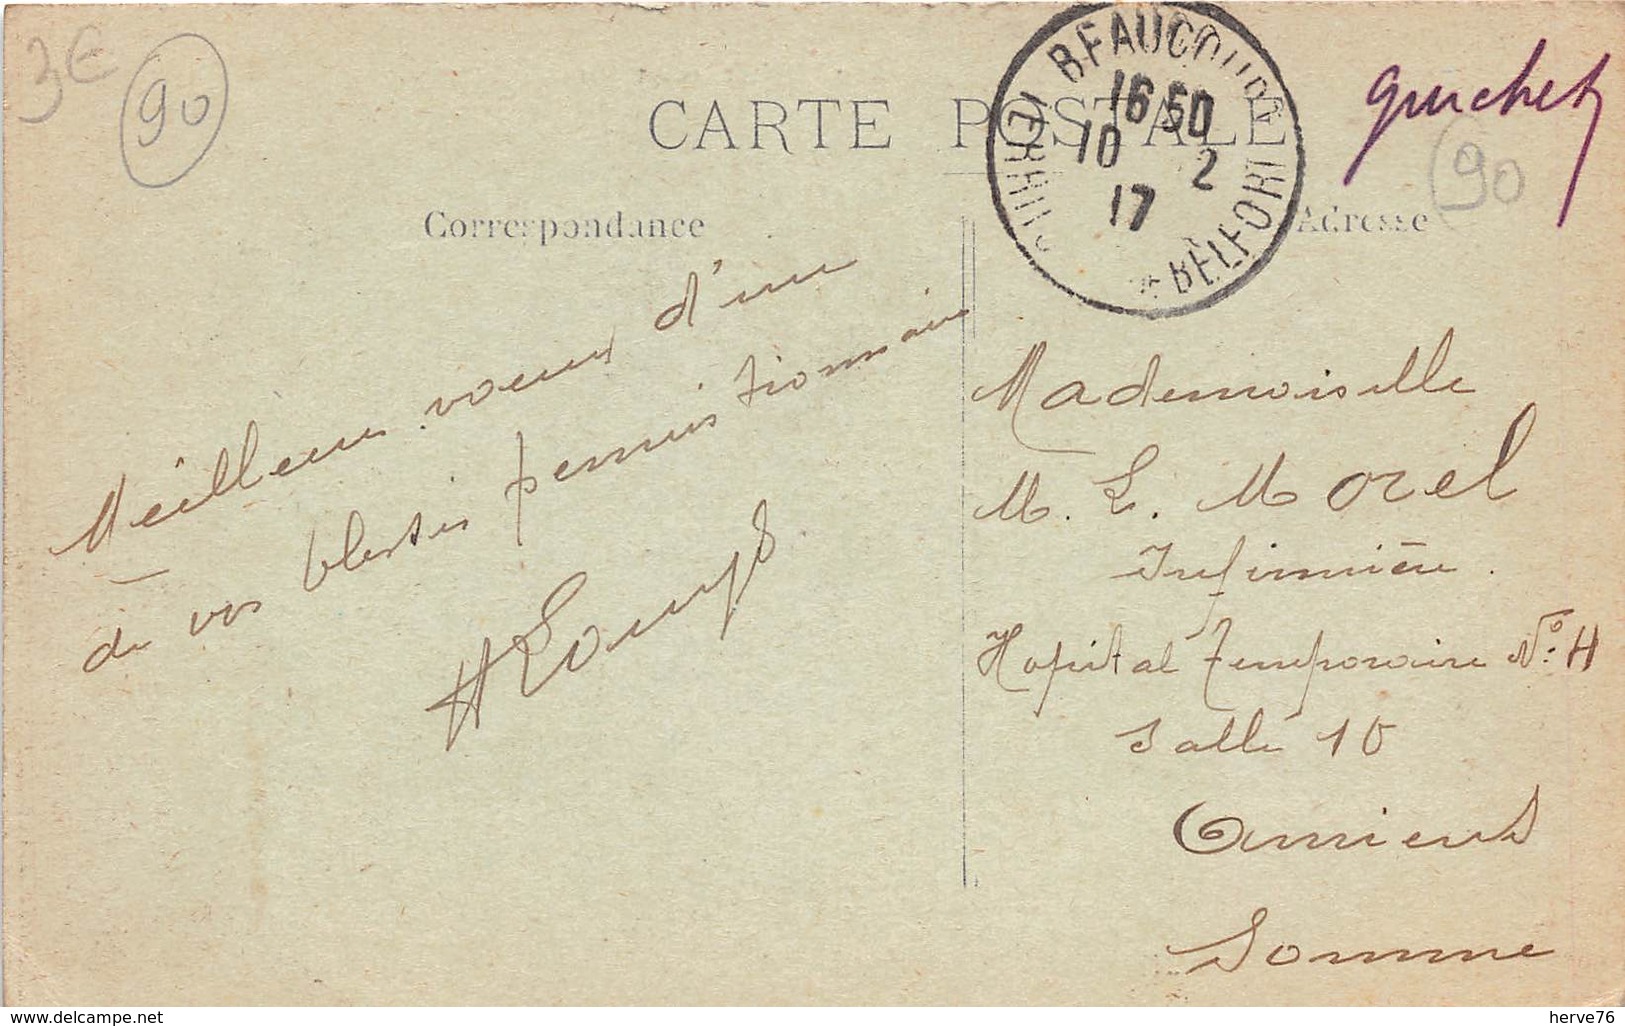 3€
90
CARTE POSTALE
guichet
90
BEAUCOURT
TERRIT
DE BELFORT
16 50
10 2
17
Correspondance
Adresse
Meilleurs voeux d'un
de vos blessés permissionnaires
Mademoiselle
M. L. Morel
Infirmière.
Hopital Temporaire No: H
Salle 10
Amiens
Somme
www.delcampe.net
herve76